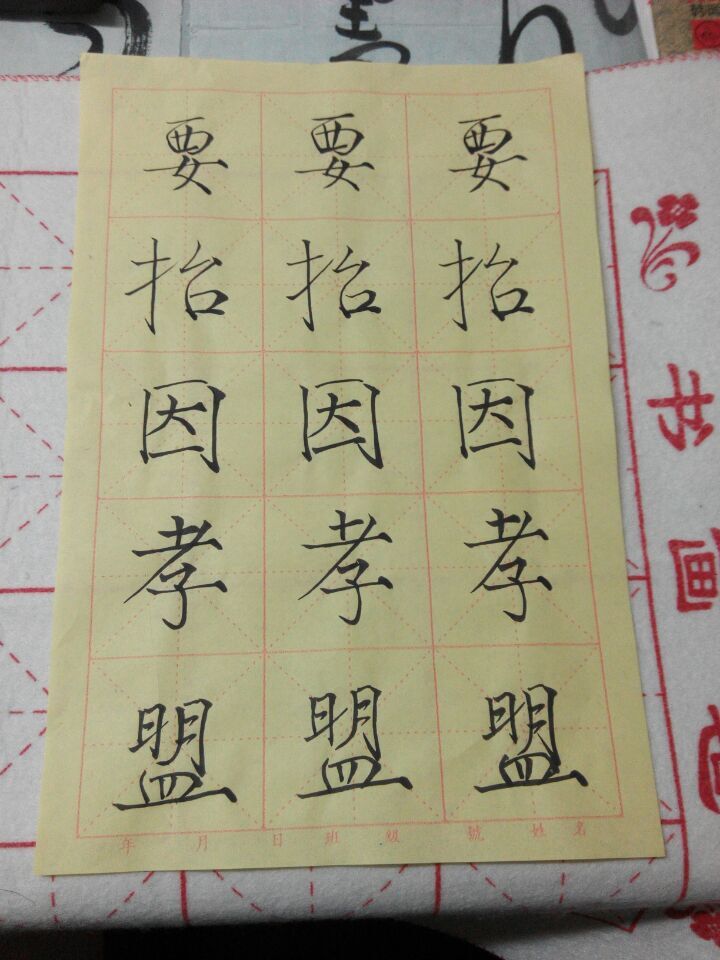 要 要 要
抬 抬 抬
因 因 因
孝 孝 孝
盟 盟 盟
年 月 日 班 级 號 姓 名
书
画